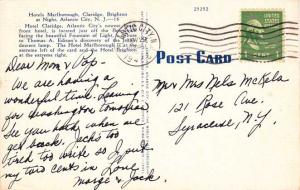 Hotels Marlborough, Claridge, Brighton
at Night, Atlantic City, N. J.—16
Hotel Claridge, Atlantic City's newest
front hotel, is located just off the
facing the beautiful Fountain of Light,
a Thomas A. Edison's discovery of the
descent lamp. The Hotel Marlborough is at the
extreme left of the card and the Hotel Brighton
at the extreme right.
29252
POST CARD
Dear Mom & Pop
We are having a
wonderful trip. Leaving
for Washington tomorrow
See you hold when we
get back. Jack's too
tired too write so I put
my two cents in Love
Marge & Jack.
Mr & Mrs Nels McKela
121 Rose Ave.
Syracuse, N.Y.